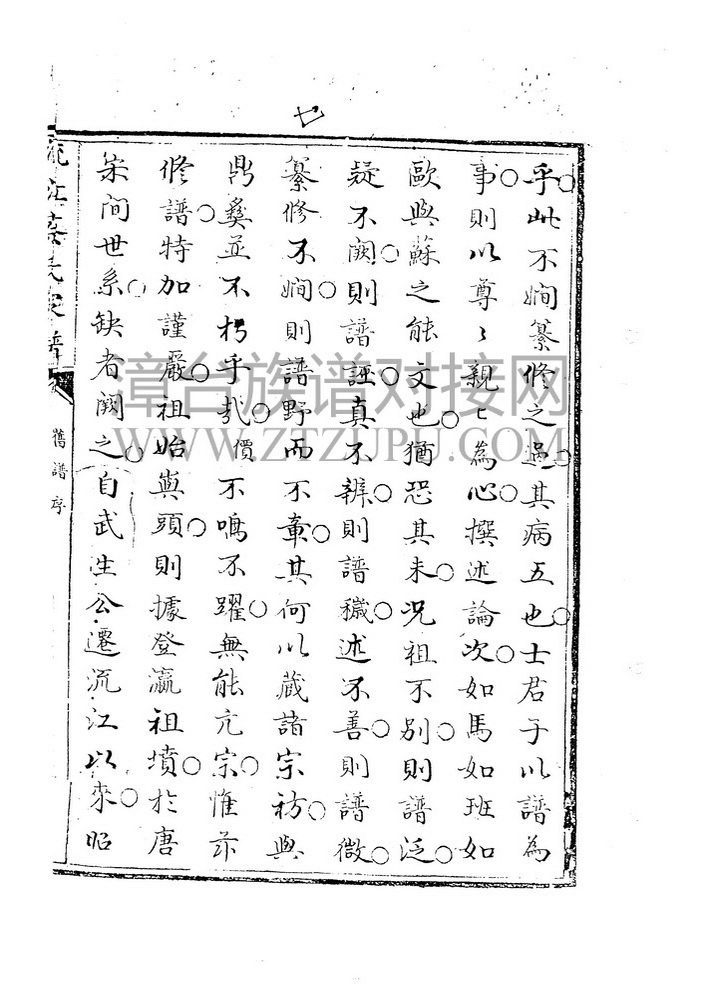 七
乎此不嫻纂修之過其病五也士君子以譜為
事則以尊〻親〻為心撰述論次如馬如班如
歐與蘇之能文也猶恐其未况祖不别則譜泛
疑不闕則譜誣真不辨則譜穢述不善則譜微
纂修不嫻則譜野而不章其何以藏諸宗祊與
鼎彝並不朽乎哉價不鳴不躍無能亢宗惟茲
修譜特加謹嚴祖始與頭則據登瀛祖墳於唐
宋间世系缺者闕之自武生公遷流江以來昭
流江 氏家譜
舊譜序
漳台族谱对接网
WWW.ZTZUPU.COM